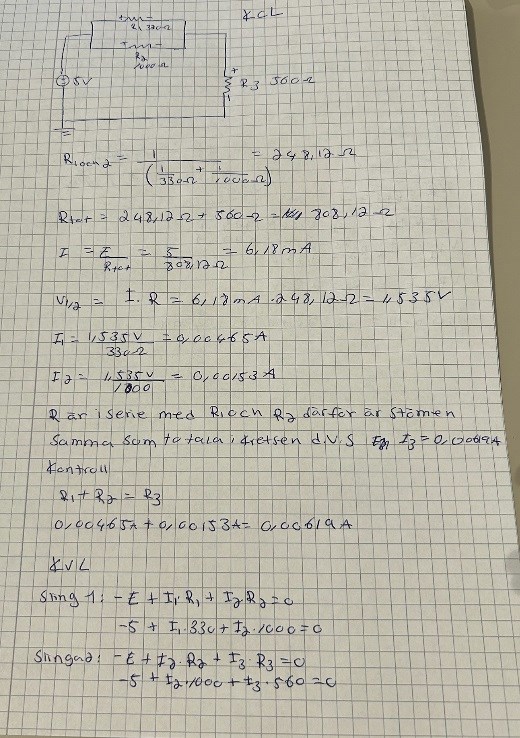 KCL
R1 330Ω
R2
1000Ω
5V
+
R3 560Ω
R1och2 = 1/(1/330Ω + 1/1000Ω) = 248,12Ω
Rtot = 248,12Ω + 560Ω = 808,12Ω
I = E/Rtot = 5/808,12Ω = 6,18mA
V1,2 = I · R = 6,18mA · 248,12Ω = 1,535V
I1 = 1,535V/330Ω = 0,00465A
I2 = 1,535V/1000 = 0,00153A
R är i serie med R1och R2 därför är stömen
Samma som totala i kretsen d.V.S I3 = 0,00619A
Kontroll
R1 + R2 = R3
0,00465A + 0,00153A = 0,00619A
KVL
Sling 1: -E + I1·R1 + I2·R2 = 0
-5 + I1·330 + I2·1000 = 0
Slinga2: -E + I2·R2 + I3·R3 = 0
-5 + I2·1000 + I3·560 = 0